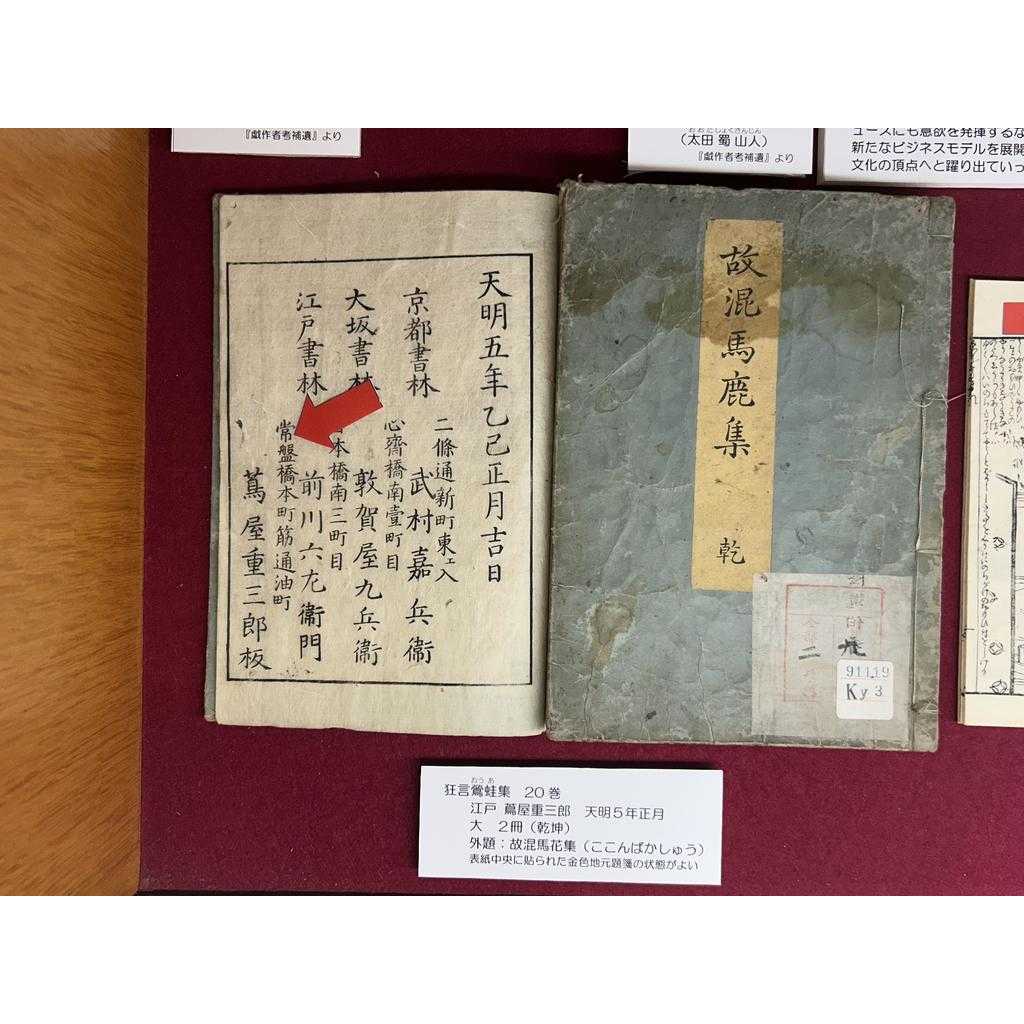 『戯作者考補遺』より
おおたしょくさんじん
（太田 蜀 山人）
『戯作者考補遺』より
ュースにも意欲を発揮するな
新たなビジネスモデルを展開
文化の頂点へと躍り出ていっ
天明五年乙巳正月吉日
京都書林
二條通新町東エ入
武村嘉兵衛
大坂書林
心齋橋南壹町目
敦賀屋九兵衛
江戸書林
本橋南三町目
前川六左衛門
常盤橋本町筋通油町
蔦屋重三郎板
故混馬鹿集
乾
911.19
Ky 3
おうあ
狂言鶯蛙集 20巻
江戸 蔦屋重三郎 天明5年正月
大 2冊（乾坤）
外題：故混馬花集（ここんばかしゅう）
表紙中央に貼られた金色地元題箋の状態がよい